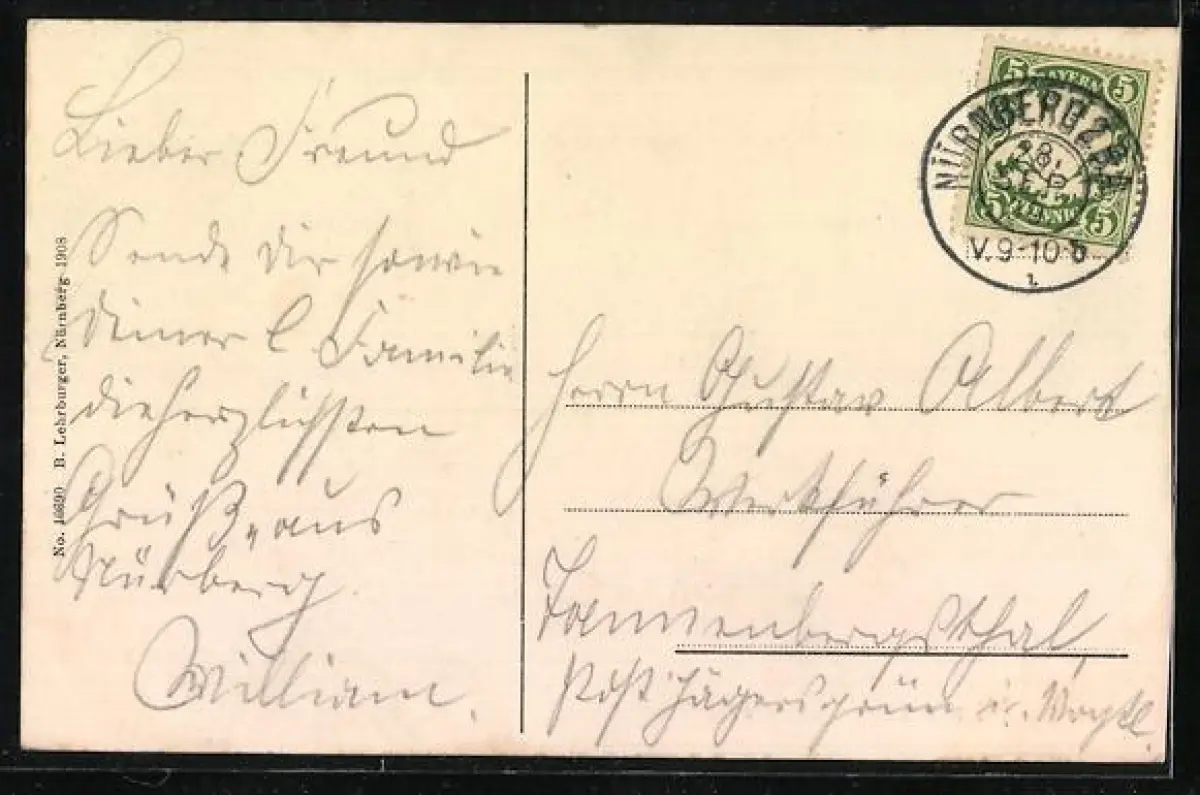 Lieber Freund
Sende dir sowie
deiner l Familie
die herzlichsten
Grüße aus
Nürberg.
William.
No. 16690 B. Lehrburger, Nürnberg 1908
5 BAYERN 5
5 PFENNIG 5
NÜRNBERG 2 B.A.
28.
SEP
V.9-10
1.
Herrn Gustav Albert
Werkführer
Tannenbergsthal,
Post Jägersgrün i. Vogtl.